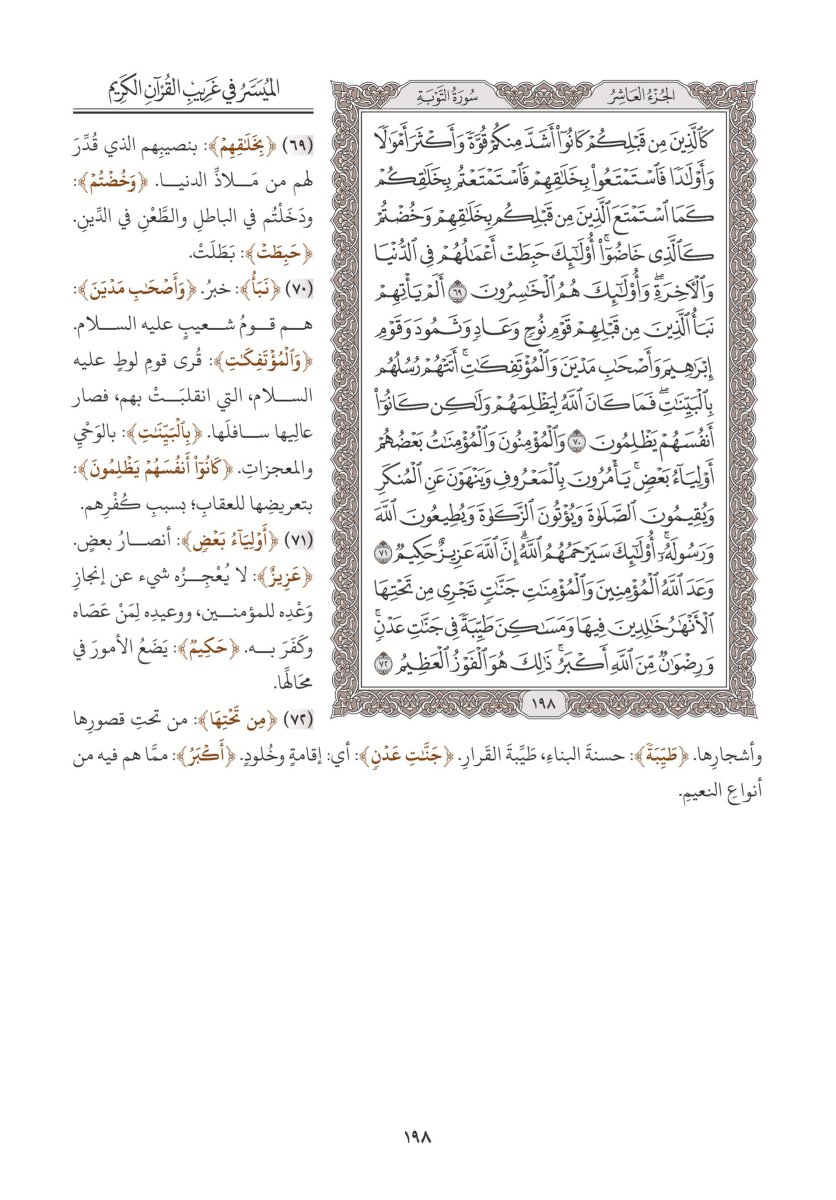 الجُزْءُ العَاشِرُ
سُورَةُ التَّوْبَةِ
كَٱلَّذِينَ مِن قَبۡلِكُمۡ كَانُوٓاْ أَشَدَّ مِنكُمۡ قُوَّةٗ وَأَكۡثَرَ أَمۡوَٰلٗا
وَأَوۡلَٰدٗا فَٱسۡتَمۡتَعُواْ بِخَلَٰقِهِمۡ فَٱسۡتَمۡتَعۡتُم بِخَلَٰقِكُمۡ
كَمَا ٱسۡتَمۡتَعَ ٱلَّذِينَ مِن قَبۡلِكُم بِخَلَٰقِهِمۡ وَخُضۡتُمۡ
كَٱلَّذِي خَاضُوٓاْۚ أُوْلَٰٓئِكَ حَبِطَتۡ أَعۡمَٰلُهُمۡ فِي ٱلدُّنۡيَا
وَٱلۡأٓخِرَةِۖ وَأُوْلَٰٓئِكَ هُمُ ٱلۡخَٰسِرُونَ ٦٩ أَلَمۡ يَأۡتِهِمۡ
نَبَأُ ٱلَّذِينَ مِن قَبۡلِهِمۡ قَوۡمِ نُوحٖ وَعَادٖ وَثَمُودَ وَقَوۡمِ
إِبۡرَٰهِيمَ وَأَصۡحَٰبِ مَدۡيَنَ وَٱلۡمُؤۡتَفِكَٰتِۚ أَتَتۡهُمۡ رُسُلُهُم
بِٱلۡبَيِّنَٰتِۖ فَمَا كَانَ ٱللَّهُ لِيَظۡلِمَهُمۡ وَلَٰكِن كَانُوٓاْ
أَنفُسَهُمۡ يَظۡلِمُونَ ٧٠ وَٱلۡمُؤۡمِنُونَ وَٱلۡمُؤۡمِنَٰتُ بَعۡضُهُمۡ
أَوۡلِيَآءُ بَعۡضٖۚ يَأۡمُرُونَ بِٱلۡمَعۡرُوفِ وَيَنۡهَوۡنَ عَنِ ٱلۡمُنكَرِ
وَيُقِيمُونَ ٱلصَّلَوٰةَ وَيُؤۡتُونَ ٱلزَّكَوٰةَ وَيُطِيعُونَ ٱللَّهَ
وَرَسُولَهُۥٓۚ أُوْلَٰٓئِكَ سَيَرۡحَمُهُمُ ٱللَّهُۗ إِنَّ ٱللَّهَ عَزِيزٌ حَكِيمٞ ٧١
وَعَدَ ٱللَّهُ ٱلۡمُؤۡمِنِينَ وَٱلۡمُؤۡمِنَٰتِ جَنَّٰتٖ تَجۡرِي مِن تَحۡتِهَا
ٱلۡأَنۡهَٰرُ خَٰلِدِينَ فِيهَا وَمَسَٰكِنَ طَيِّبَةٗ فِي جَنَّٰتِ عَدۡنٖۚ
وَرِضۡوَٰنٞ مِّنَ ٱللَّهِ أَكۡبَرُۚ ذَٰلِكَ هُوَ ٱلۡفَوۡزُ ٱلۡعَظِيمُ ٧٢
١٩٨
المُيَسَّرُ في غَرِيبِ القُرْآنِ الكَرِيمِ
(٦٩) ﴿بِخَلَٰقِهِمۡ﴾: بنصيبِهم الذي قُدِّرَ
لهم من مَــلاذِّ الدنيـا. ﴿وَخُضۡتُمۡ﴾:
ودَخَلْتُم في الباطلِ والطَّعْنِ في الدِّينِ.
﴿حَبِطَتۡ﴾: بَطَلَتْ.
(٧٠) ﴿نَبَأُ﴾: خبرُ. ﴿وَأَصۡحَٰبِ مَدۡيَنَ﴾:
هـم قـومُ شـعيبٍ عليه السـلام.
﴿وَٱلۡمُؤۡتَفِكَٰتِ﴾: قُرى قومِ لوطٍ عليه
السـلام، التي انقلبَـتْ بهم، فصار
عاليها سـافلَها. ﴿بِٱلۡبَيِّنَٰتِ﴾: بالوَحْيِ
والمعجزاتِ. ﴿كَانُوٓاْ أَنفُسَهُمۡ يَظۡلِمُونَ﴾:
بتعريضِها للعقابِ؛ بسببِ كُفْرِهم.
(٧١) ﴿أَوۡلِيَآءُ بَعۡضٖ﴾: أنصـارُ بعضٍ.
﴿عَزِيزٌ﴾: لا يُعْجِـزُه شيء عن إنجازِ
وَعْدِه للمؤمنـين، ووعيدِه لِمَنْ عَصَاه
وكَفَرَ بـه. ﴿حَكِيمٞ﴾: يَضَعُ الأمورَ في
محَالِّها.
(٧٢) ﴿مِن تَحۡتِهَا﴾: من تحتِ قصورِها
وأشجارِها. ﴿طَيِّبَةٗ﴾: حسنةَ البناءِ، طَيِّبةَ القَرارِ. ﴿جَنَّٰتِ عَدۡنٖ﴾: أي: إقامةٍ وخُلودٍ. ﴿أَكۡبَرُ﴾: ممَّا هم فيه من
أنواعِ النعيمِ.
١٩٨